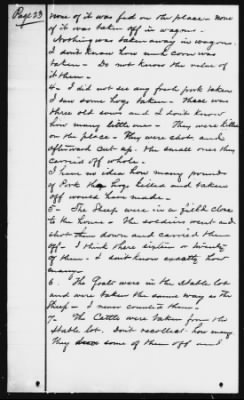 Page 23
none of it was fed on the place - none
of it was taken off in wagons.
Nothing was taken away in wagons.
I don't know how much corn was
taken - Do not know the value of
it then -
4 - I did not see any fresh pork taken
I saw some hogs taken - there was
three old sows and I don't know
how many little ones - They were killed
on the place - They were shot and
afterward cut up. The small ones they
carried off whole.
I have no idea how many pounds
of Pork the hogs killed and taken
off would have made -
5 - The Sheep were in a field close
to the house - The soldiers went and
shot them down and carried them
off - I think there sixteen or twenty
of them - I don't know exactly how
many
6. The Goats were in the stable lot
and were taken the same way as the
Sheep - I never counted them -
7 - The Cattle were taken from the
Stable lot. Don't recollect how many
They some of them off and